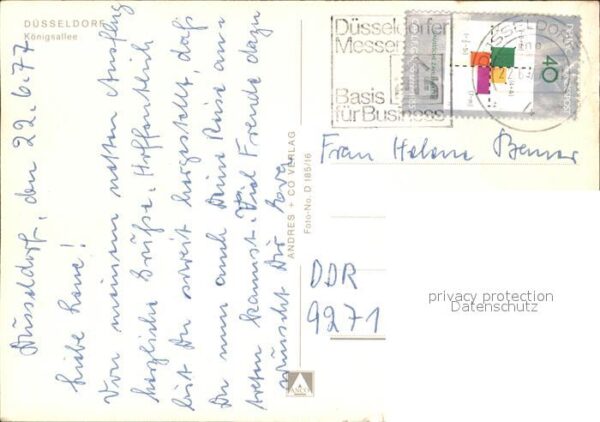 DÜSSELDORF
Königsallee
Düsseldorf, den 22.6.77
Liebe Lene!
Von meinem netten Ausflug
herzliche Grüße. Hoffentlich
bist Du soweit hergestellt, daß
Du nun auch Deine Reise an-
treten kannst. Viel Freude dazu
wünscht Dir
ANDRES + CO VERLAG
Foto-No. D 185/16
ANCO
Düsseldorfer
Messen
Basis
für Business
DÜSSELDORF
40
Frau Helene
DDR
9271
privacy protection
Datenschutz